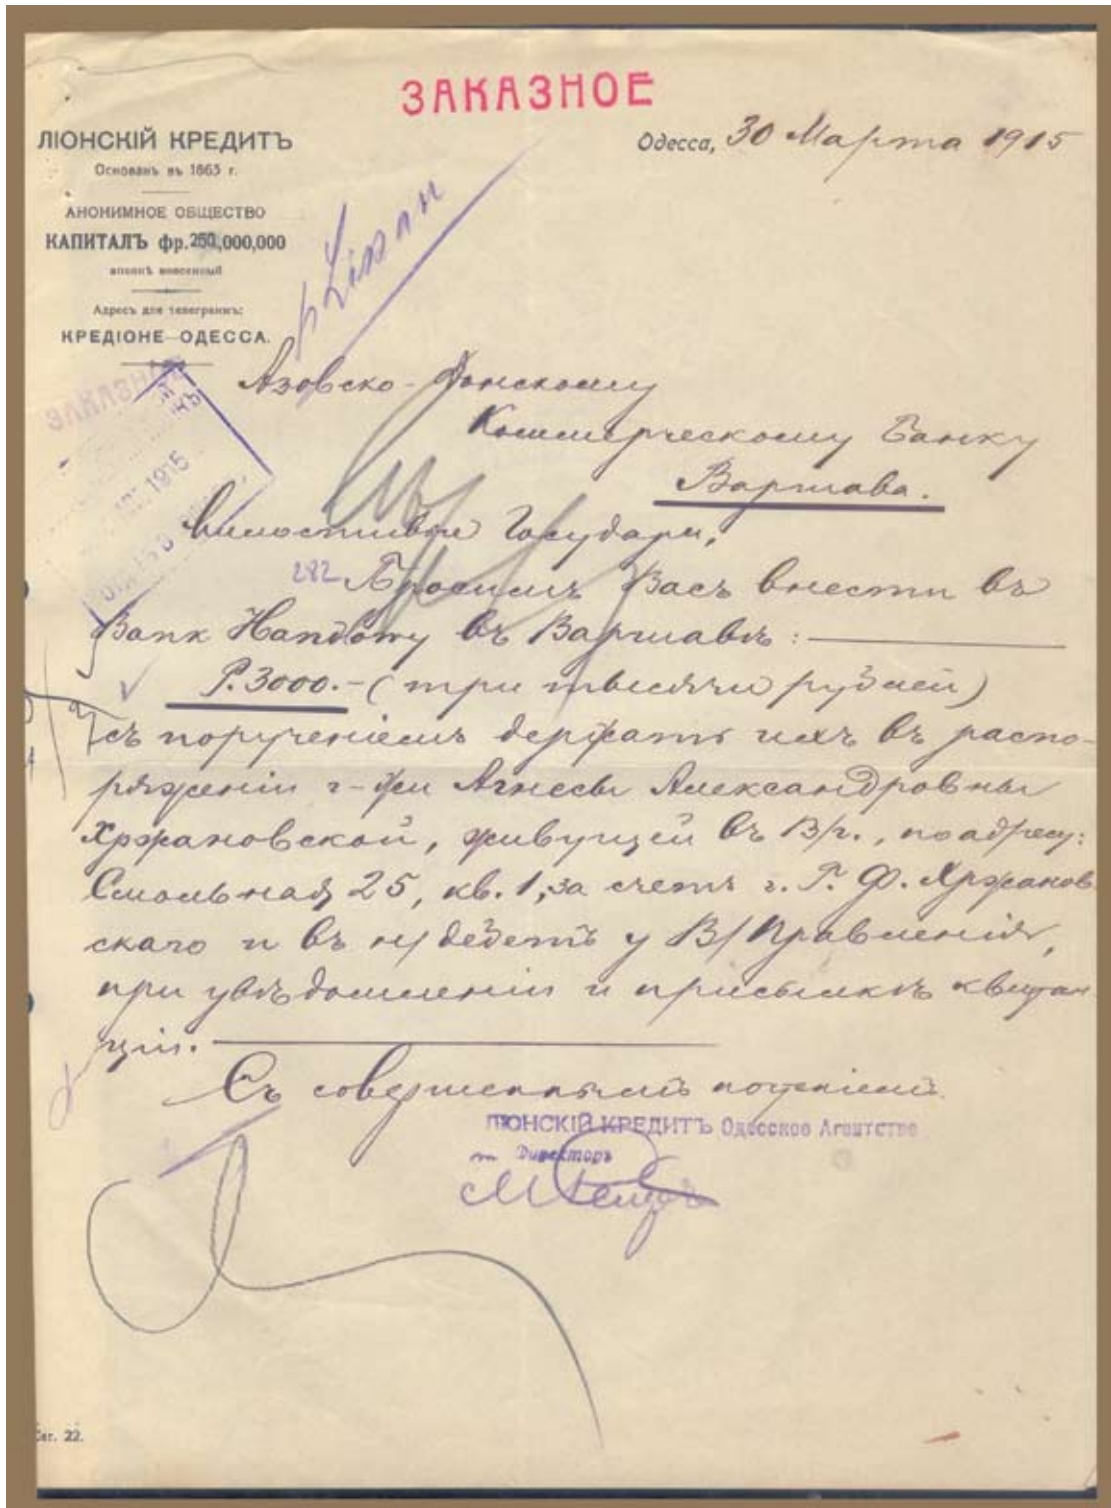 ЗАКАЗНОЕ
ЛІОНСКІЙ КРЕДИТЪ
Основанъ въ 1863 г.
АНОНИМНОЕ ОБЩЕСТВО
КАПИТАЛЪ фр. 250,000,000
вполнѣ внесенный
Адресъ для телеграммъ:
КРЕДІОНЕ-ОДЕССА.
Одесса, 30 Марта 1915
ЗАКАЗНАЯ
1915
Азовско-Донскому
Коммерческому Банку
Варшава.
Милостивые Государи,
282 Просимъ Васъ внести въ
Банк Handowy въ Варшавѣ:
Р. 3000.- (три тысячи рублей)
съ порученіемъ держать ихъ въ распо-
ряженіи г-жи Агнессы Александровны
Хржановской, живущей въ В/г., по адресу:
Смольная 25, кв. 1, за счетъ г. Г. Ф. Хржанов
скаго и въ н/дебетъ у В/Правленія,
при увѣдомленіи и присылкѣ квитан
ціи.
Съ совершеннымъ почтеніемъ
ЛІОНСКІЙ КРЕДИТЪ Одесское Агентство
Директоръ
22.